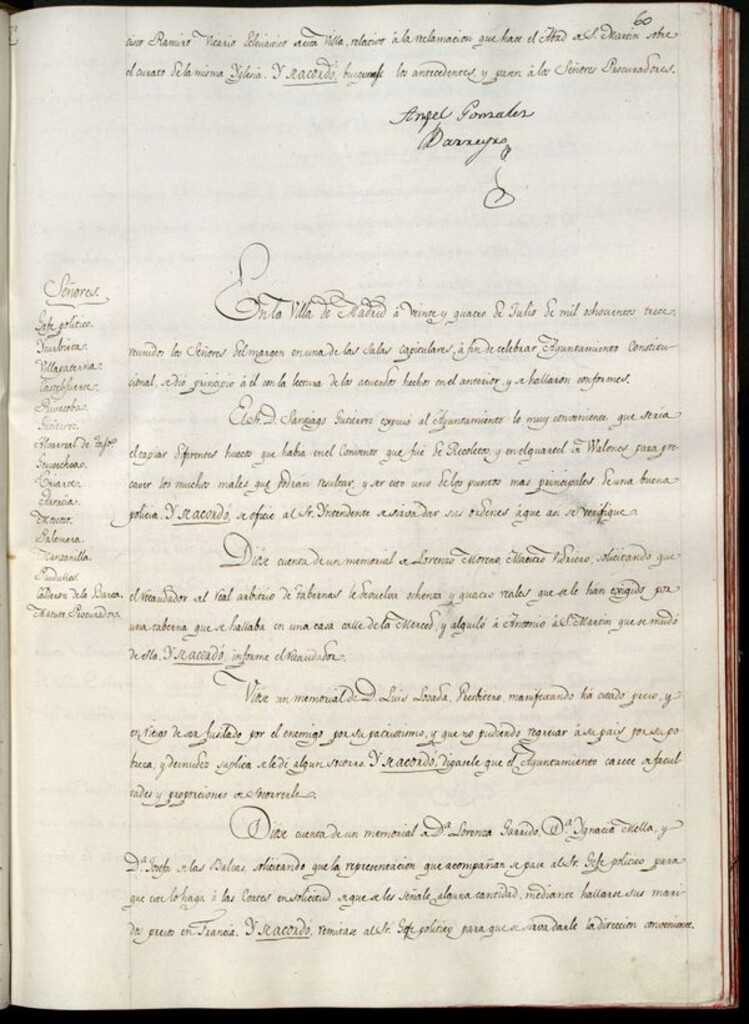 60
cisco Ramiro Vicario Eclesiástico de esta Villa, relativo á la reclamacion que hace el Abad de S. Martin sobre
el curato de la misma Yglesia. Y se acordó, busquense los antecedentes, y pasen á los Señores Procuradores.
Angel Gonzalez
Barreyro
Señores.
Gefe politico.
Yturbieta.
Villapaterna.
Castelfuerte.
Rivacoba.
Gutierrez.
Goycochea.
Uriarte.
Garcia.
Palomera.
Manzanilla.
Calderon de la Barca.
Matute, Procurador.
En la Villa de Madrid á veinte y quatro de Julio de mil ochocientos trece,
reunidos los Señores del margen en una de las salas capitulares, á fin de celebrar Ayuntamiento Constitu-
cional, se dió principio á él con la lectura de los acuerdos hechos en el anterior, y se hallaron conformes.
El Sr. D. Santiago Gutierrez expuso al Ayuntamiento lo muy conveniente que seria
el tapiar diferentes huecos que habia en el Convento que fué de Recoletos, y en el quartel de Walonas para pre-
caver los muchos males que podrian resultar, y ser esto uno de los puntos mas principales de una buena
policia. Y se acordó, se oficie al Sr. Yntendente se sirva dar sus ordenes á que asi se verifique.
Dióse cuenta de un memorial de Lorenzo Moreno, Maestro Vidriero, solicitando que
el recaudador del Real arbitrio de tabernas le devuelva ochenta y quatro reales que se le han exigido por
una taberna que se hallaba en una casa calle de la Merced, y alquiló á Antonio de S. Martin que se mudó
de ella. Y se acordó, informe el recaudador.
Vióse un memorial de D. Luis Losada, Presbitero, manifestando há estado preso, y
en riesgo de ser fusilado por el enemigo por su patriotismo, y que no pudiendo regresar á su pais por su po-
breza, y desnudez suplica se le dé algun socorro. Y se acordó, digasele que el Ayuntamiento carece de facul-
tades y proporciones de socorrerle.
Dióse cuenta de un memorial de D.ª Lorenza Garrido, D.ª Ygnacia Mella, y
D.ª Josefa de las Balsas, solicitando que la representacion que acompañan se pase al Sr. Gefe politico para
que este lo haga á las Cortes en solicitud de que se les señale alguna cantidad, mediante hallarse sus mari-
dos presos en Francia. Y se acordó, remitase al Sr. Gefe politico para que se sirva darle la direccion conveniente.